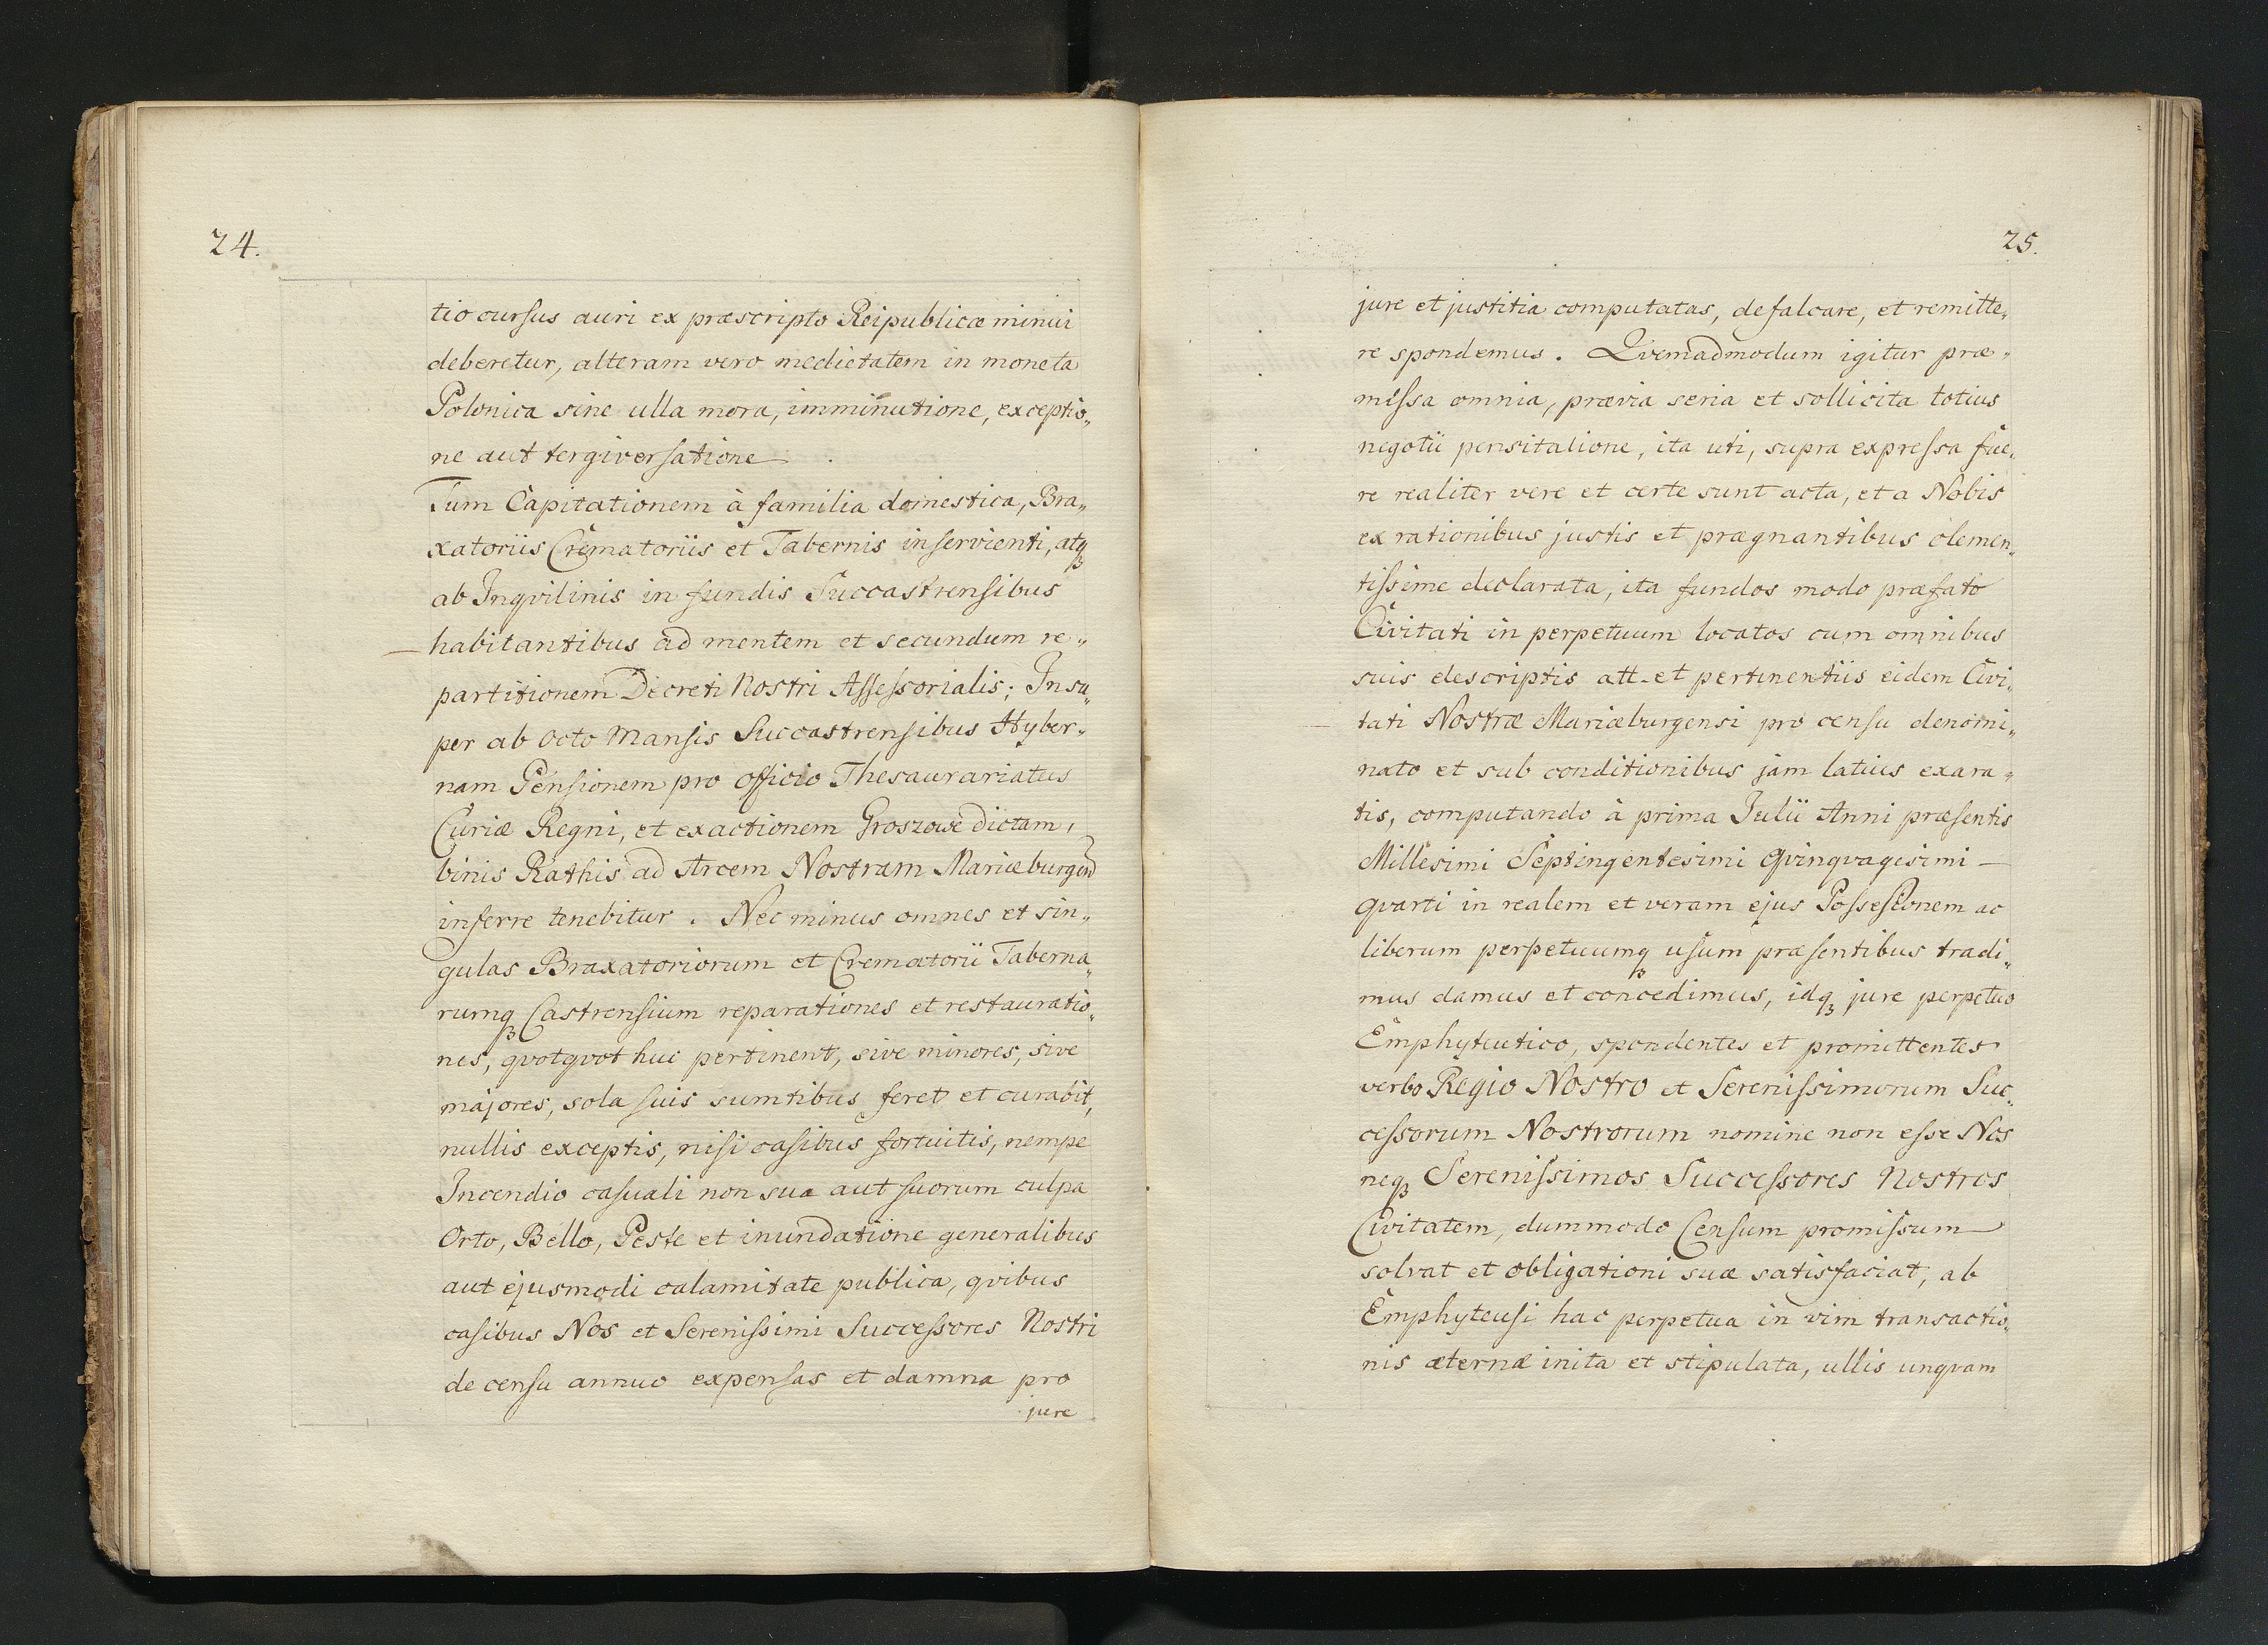 24.
tio cursus auri ex præscripto Reipublicæ minui
deberetur, alteram vero medietatem in moneta
Polonica sine ulla mora, imminutione, exceptio„
ne aut tergiversatione
Tum Capitationem à familia domestica, Bra„
xatoriis Crematoriis et Tabernis inservienti, atqꝫ
ab Inqvilinis in fundis Succastrensibus
habitantibus ad mentem et secundum re„
partitionem Decreti Nostri Assessorialis; Insu„
per ab Octo Mansis Succastrensibus Hyber„
nam Pensionem pro Officio Thesaurariatus
Curiæ Regni, et exactionem Groszowe dictam,
binis Rathis ad Arcem Nostram Mariæburgen
inferre tenebitur. Nec minus omnes et sin„
gulas Braxatoriorum et Crematorii Taberna„
rumqꝫ Castrensium reparationes et restauratio„
nes, qvotqvot huc pertinent, sive minores, sive
majores, sola suis sumtibus feret et curabit,
nullis exceptis, nisi casibus fortuitis, nempe
Incendio casuali non sua aut suorum culpa
Orto, Bello, Peste et inundatione generalibus
aut ejusmodi calamitate publica, qvibus
casibus Nos et Serenissimi Successores Nostri
de censu annuo expensas et damna pro
jure
25.
jure et justitia computatas, defalcare, et remitte„
re spondemus. Qvemadmodum igitur præ„
missa omnia, prævia seria et sollicita totius
negotii pensitatione, ita uti, supra expressa fue„
re realiter vere et certe sunt acta, et a Nobis
ex rationibus justis et prægnantibus clemen„
tissime declarata, ita fundos modo præfato
Civitati in perpetuum locatos cum omnibus
suis descriptis att- et pertinentiis eidem Civi„
tati Nostræ Mariæburgensi pro censu denomi„
nato et sub conditionibus jam latius exara„
tis, computando à prima Julii Anni præsentis
Millesimi Septingentesimi Qvinqvagesimi —
qvarti in realem et veram ejus Possessionem ac
liberum perpetuumqꝫ usum præsentibus tradi„
mus damus et concedimus, idqꝫ jure perpetuo
Emphyteutico, spondentes et promittentes
verbo Regio Nostro et Serenissimorum Suc„
cessorum Nostrorum nomine non esse Nos
neqꝫ Serenissimos Successores Nostros
Civitatem, dummodo Censum promissum
solvat et obligationi suæ satisfaciat, ab
Emphyteusi hac perpetua in vim transactio„
nis æternæ inita et stipulata, ullis unqvam